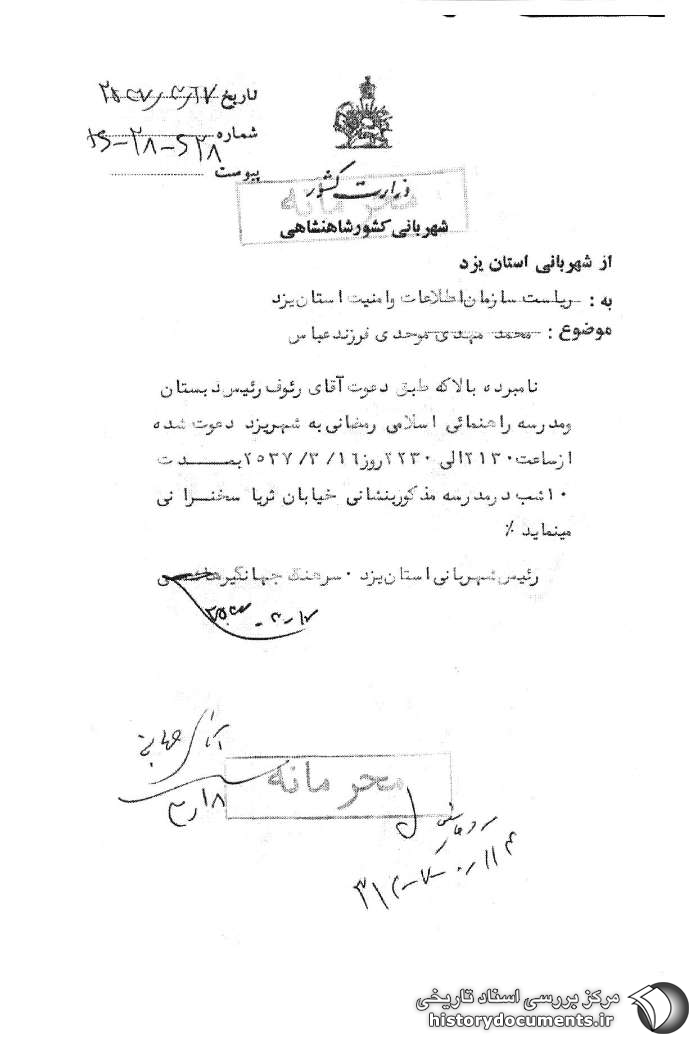 تاریخ ۲۵۳۷٫۳٫۱۷
شماره ۲۸-۲۸-
پیوست
وزارت کشور
محرمانه
شهربانی کشور شاهنشاهی
از شهربانی استان یزد
به : ریاست سازمان اطلاعات وامنیت استان یزد
موضوع : محمد مهدی موحدی فرزند عباس
نامبرده بالاکه طبق دعوت آقای رئوف رئیس دبستان
ومدرسه راهنمائی اسلامی رمضانی به شهریزد دعوت شده
ازساعت ۲۱۳۰ الی ۲۲۳۰ روز ۱۶/ ۳/ ۲۵۳۷ بمدت
۱۰ شب درمدرسه مذکوربنشانی خیابان ثریا سخنرانی
مینماید ٪
رئیس شهربانی استان یزد ۰ سرهنگ جهانگیر
آقای
محرمانه
۱۸٫۳
مرکز بررسی اسناد تاریخی
historydocuments.ir